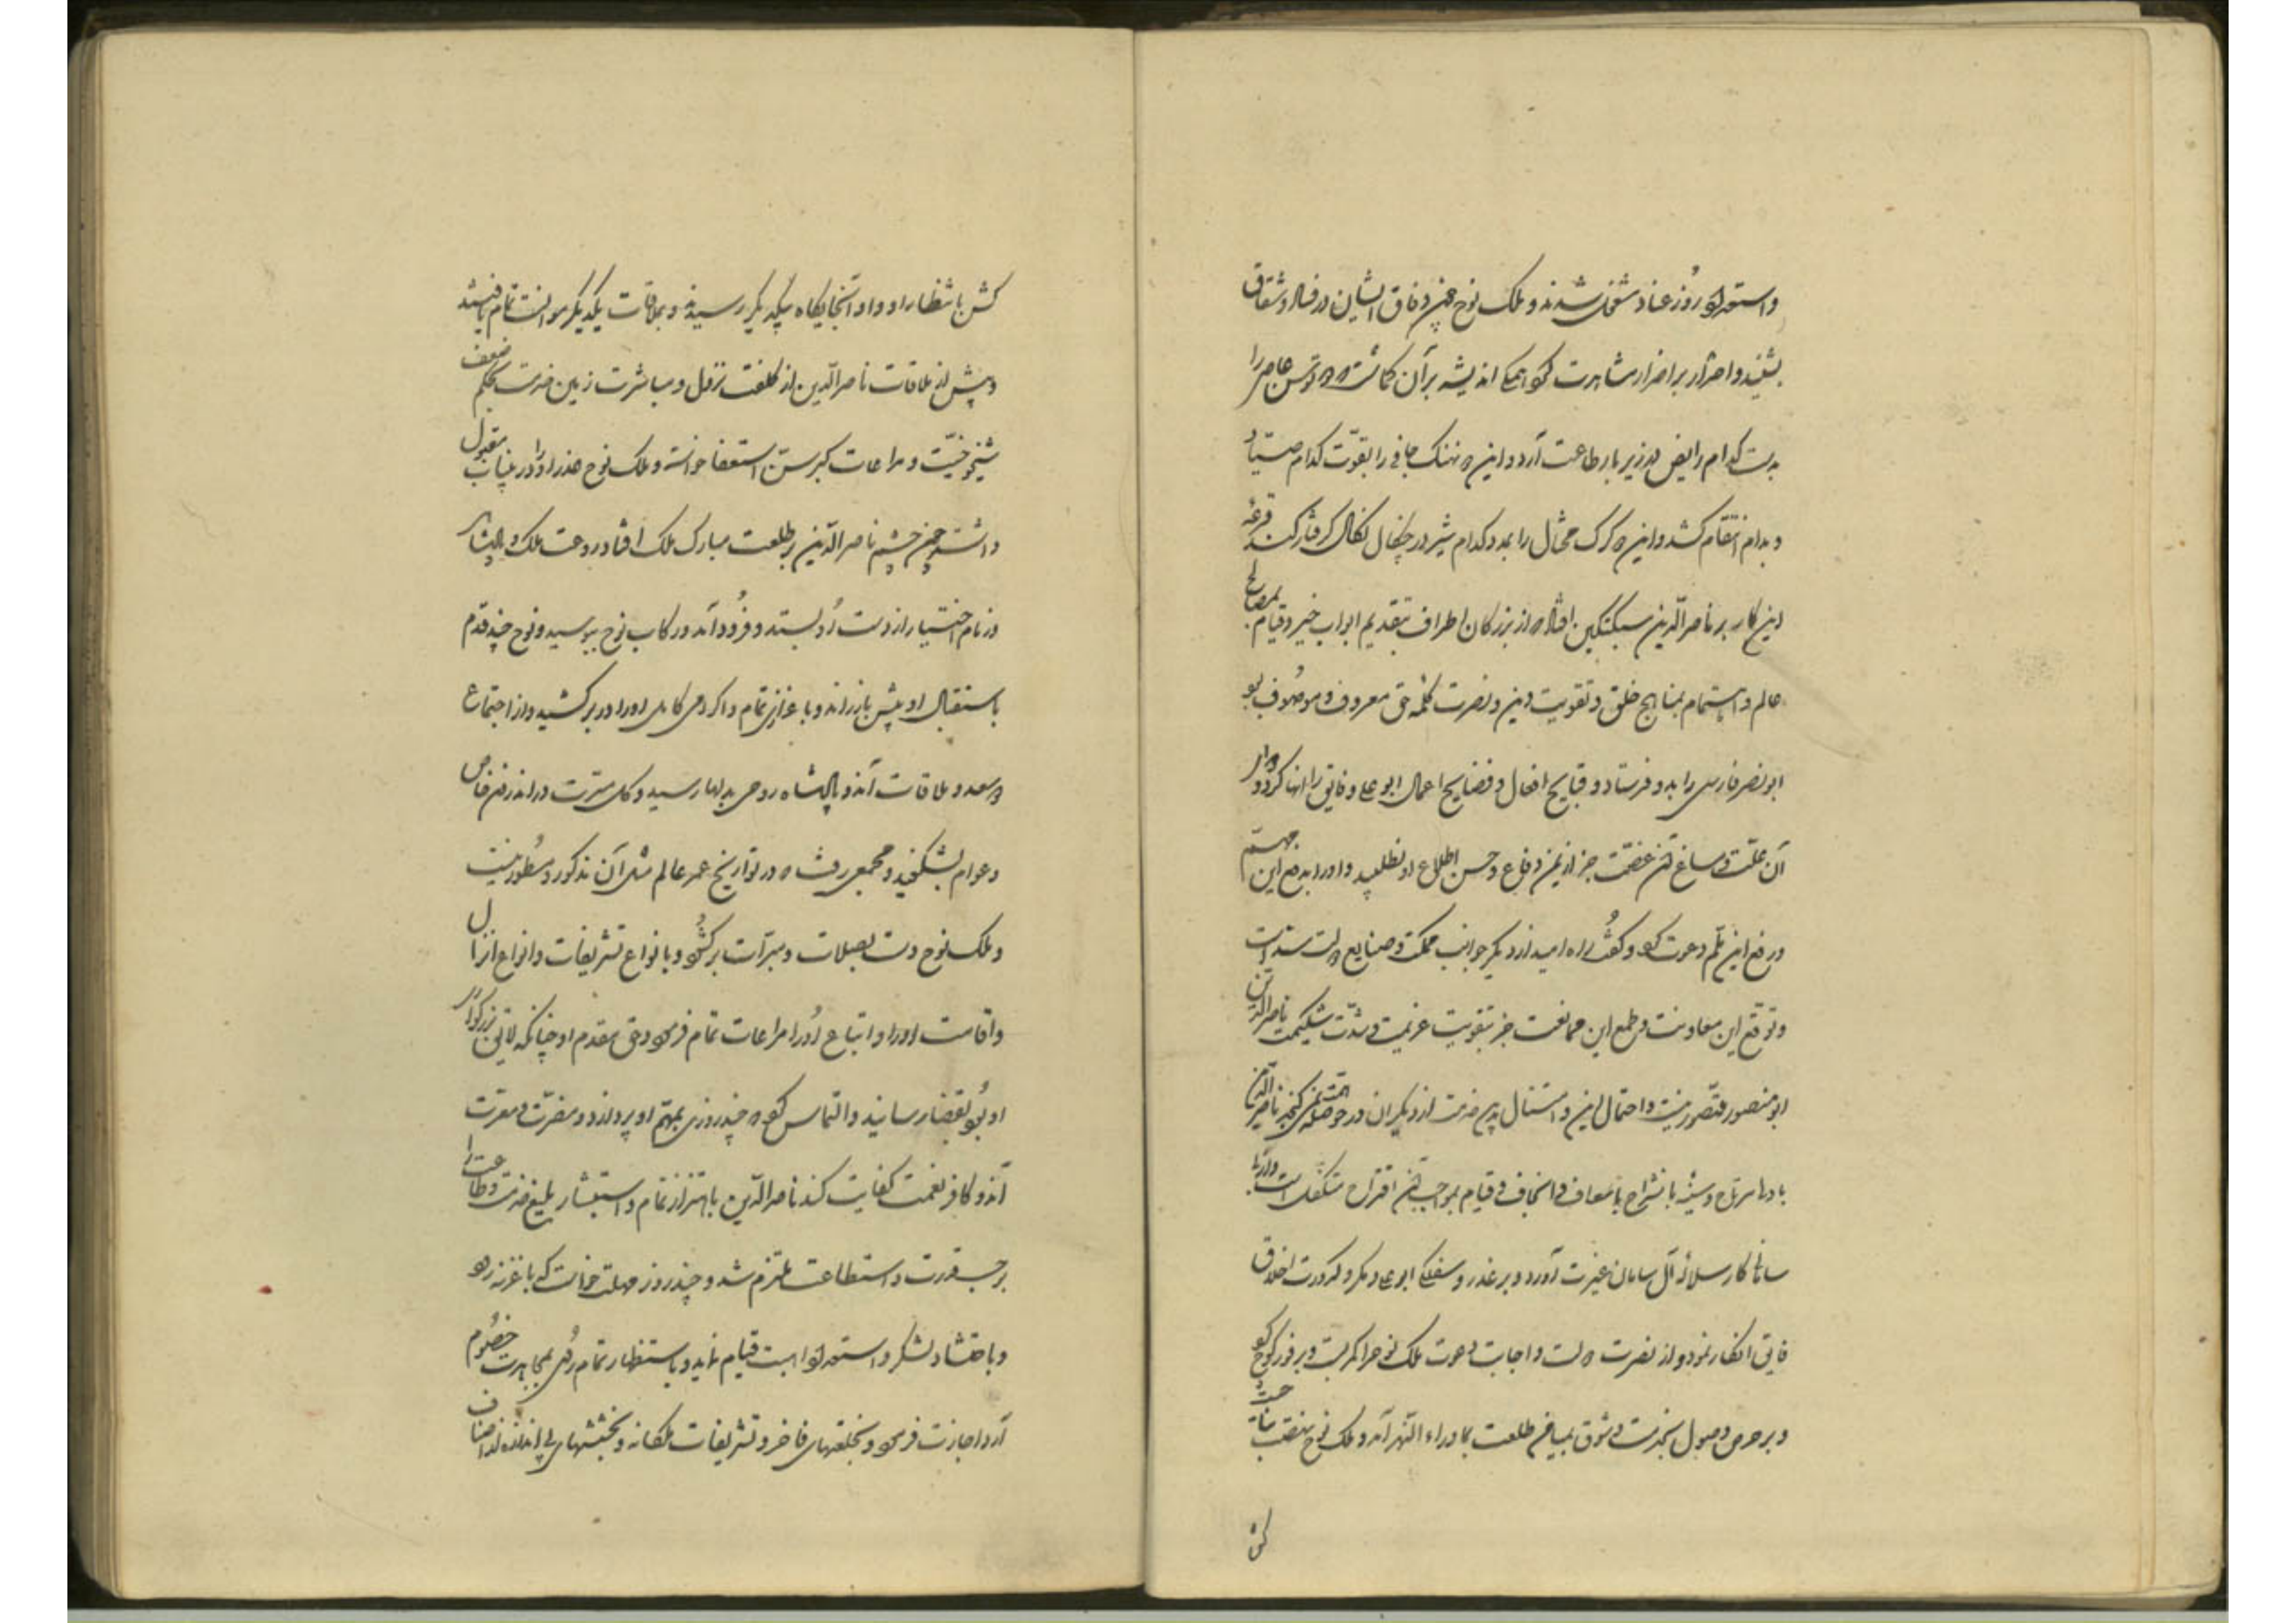 واستعداد روز عناد مشغول شدند و ملک نوح چون وفاق ایشان در فساد و شقاق
بشنید و اصرار بر اضرار مشاهدت کرد همگی اندیشه بران کماشت که توسن عاصی را
بدست کدام رایض در زیر بار طاعت آرد و این نهنک جافی را بقوّت کدام صیّاد
و بدام انتقام کشد و این گرک محتال را بمدد کدام شیر در چنکال نکال گرفتار کند قرعهٔ
این کار بر ناصرالدین سبکتکین افتاد که از بزرکان اطراف بتقدیم ابواب خیر و قیام بمصالح
عالم و اهتمام بمناهج خلق و تقویت دین و نصرت کلمهٔ حق معروف و موصوف بود
ابونصر فارسی را بدو فرستاد و قبایح افعال و فضایح اعمال ابوعلی و فایق را انها کرد و دوا
آن علّت و مساغ آن غصّت جز از یمن دفاع و حسن اطلاع او نطلبید و او را بدفع این مهمّ
و رفع این ثلم دعوت کرد و گفت راه امید از دیکر جوانب مملکت و صنایع دولت بسته است
و توقع این معاونت و طمع این ممانعت جز بتقویت عزیمت و شدّت شکیمت ناصرالدین
ابومنصور متصوّر نیست و احتمال این و استقلال بدین خدمت از دیکران در حوصلهٔ تمنی نکنجد ناصرالدین
با دلی مرتاح و سینهٔ بانشراح باسعاف و انجاف و قیام بموجب آن اقتراح متکفل
سامانی کار سلالهٔ آل سامان غیرت آورد و بر غدر و سفلکی ابوعلی و مکر و کدورت اخلاق
فایق انکار نمود و از نصرت دولت و اجابت دعوت ملک نوح را کمر بست و بر فور کوچ کرد
و بر حرص وصول بخدمت و شوق بمیامن طلعت بماوراء النّهر آمد و ملک نوح بناحیت
کش
کش بانتظار او و او آنجایکاه بیکدیکر رسیدند و بملاقات یکدیکر موانست تمام یافتند
و پیش از ملاقات ناصرالدین از کلفت نزول و مباشرت زمین خدمت بحکم ضعف
شیخوخیّت و مراعات کبر سنّ استعفا خواسته و ملک نوح عذر او را در آن باب مقبول
داشت چون چشم ناصرالدین بر طلعت مبارک ملک افتاد و روعت ملک و پادشاهی
زمام اختیار از دست او بستد و فرود آمد و رکاب نوح ببوسید و نوح چند قدم
باستقبال او پیش باز راند و باعزازی تمام و اکرامی کامل او را در بر کشید و از اجتماع
دو سعد و ملاقات آن دو پادشاه روحی بدلها رسید و کل مسرّت در اندرون خاص
و عوام بشکفید و مجمعی رفت که در تواریخ عمر عالم مثل آن مذکور و مسطور نیست
و ملک نوح دست بصلات و مبرّات برکشود و بانواع تشریفات و انواع انزال
و اقامت او را و اتباع او را مراعات تمام فرمود و حق مقدم او چنانکه لایق بزرکواری
او بود بقضا رسانید و التماس کرد که چند روزی بمهمّ او پردازد و مضرّت و معرّت
آن دو کافر نعمت کفایت کند ناصرالدین باهتزاز تمام و استبشار بلیغ خدمت و طاعت را
بر حسب قدرت و استطاعت ملتزم شد و چند روز مهلت خواست که با غزنه رود
و باحتشاد لشکر و استعداد اهبت قیام نماید و باستظهار تمام روی بمحاربت خصوم
آرد اجازت فرمود و بخلعتهای فاخر و تشریفات ملکانه و بخششهای بی اندازه از اصناف